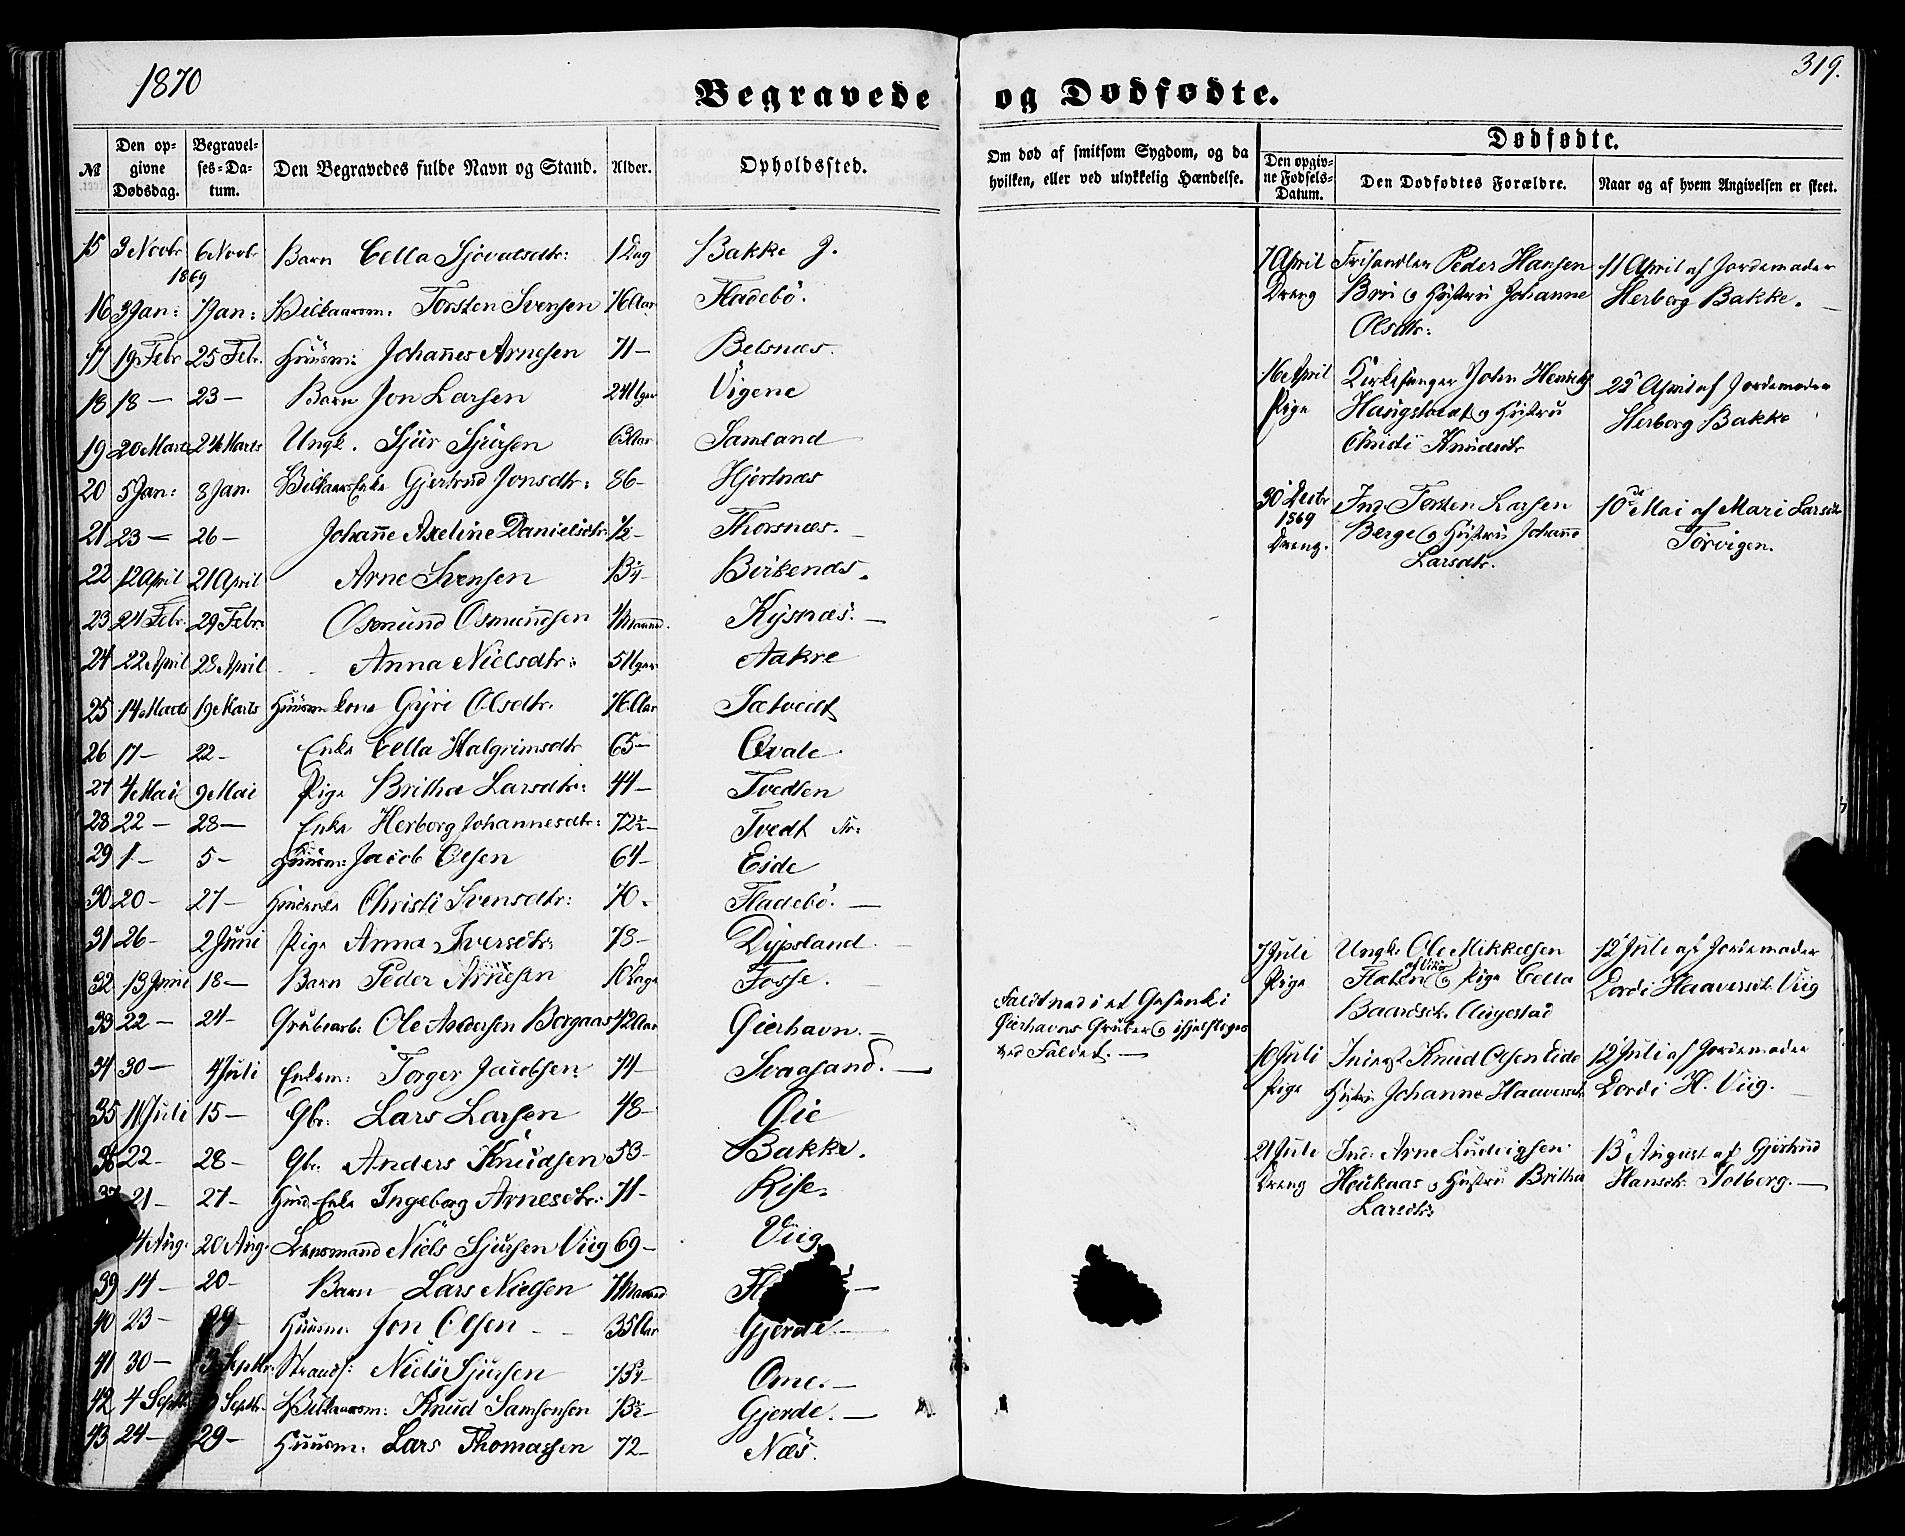 1870
319.
Begravede og Dødfødte.
№ Den opgivne Dødsdag. Begravelses-Datum. Den Begravedes fulde Navn og Stand. Alder. Opholdssted.
Om død af smitsom Sygdom, og da hvilken, eller ved ulykkelig Hændelse.
Dødfødte.
Den opgivne Fødsels-Datum. Den Dødfødtes Forældre. Naar og af hvem Angivelsen er skeet.
15 3 Novbr 6 Novbr 1869 Barn Cella Sjovatsdtr: 1 Dag Bakke J.
16 3 Jan: 7 Jan: Vilkaarsm: Torsten Svensen 76 Aar Fladebö.
17 19 Febr 25 Febr. Huusm: Johannes Arnesen 71– Belsnæs.
18 18 – 23 – Barn Jon Larsen 2 Uger Vigene
19 20 Marts 24 Marts Ungk. Sjur Sjursen 63 Aar Samland
20 5 Jan: 8 Jan. Vilkaarsenke Gjertrud Jonsdtr: 86– Hjertnæs
21 23 – 26 – Johanne Axeline Danielsdtr: ½– Thorsnæs.–
22 12 April 21 April Arne Svensen Birkenæs.
23 24 Febr. 29 Febr. Osmund Osmundsen 4 Maaned. Kysnæs.–
24 22 April 28 April Anna Nielsdtr: 5 Uger Aakre
25 14 Marts 19 Marts Huusm kone Gyri Olsdtr. 76 Aar Sætvedt
26 17– 22– Enke Cella Halgrimsdtr 65– Qvale
27 4 Mai 9 Mai Pige Britha Larsdtr: 44– Tvedten
28 22 – 28 – Enke Herborg Johannesdtr: 72½– Tvedt
29 1– 5– Huusm: Jacob Olsen 64– Eide
30 20– 27– Christi Svensdtr: 70. Fladebö.–
31 26– 2 Juni Pige Anna Iversdtr: 78– Dypsland.
32 13 Juni 18– Barn Peder Arnesen 10 Dage Fosse.
33 22– 24– Grubearb: Ole Andersen Borgaas 42 Aar Øierhavn.–
Faldt ned i et Gesenk i
Øierhavns Gruber og ihjelsloges
ved Faldet.–
34 30– 4 Juli Enkem: Torger Jacobsen 74– Svaasand.–
35 11 Juli 15– Gbr: Lars Larsen 48– Øie
36 22– 28– Gbr: Anders Knudsen 53– Bakke.
37 21– 27– Huusm. Enke Ingeborg Arnesdtr: 71– Rise.
14 Aug. 20 Aug. Lensmand Niels Sjursen Viig 69– Viig
39 14– 20– Barn Lars Nielsen 7 Maaned
40 23– 29– Huusm: Jon Olsen 35 Aar Gjerde.–
41 30– 3 Septbr. Strands: Niels Sjursen Ome.–
42 4 Septbr Septbr. Vilkaarsm: Knud Samsonsen Gjerde.–
43 24– 29– Huusm: Lars Thomassen 72– Næs.
7 April Frihandler Peder Hansen 11 April af Jordemoder
Dreng Bru og Hustru Johanne Herborg Bakke.
Olsdtr:
16 April Kirkesanger John Henriks 22 April af Jordemoder
Pige og Hustru Herborg Bakke
Christi Knudsdtr
30 Decbr 1869 Ind. Torsten Larsen 10de Mai af Mari Larsdt
Dreng. Berge og Hustru Johanne Torvigen.
Larsdtr.
7 Juli Ungk. Ole Mikkelsen 12 Juli af Jordemoder
Pige og Pige Cella Dordi Haaversdt. Viig
Baardsdtr. Augestad
10 Juli Knud Olsen Eide 12 Juli af Jordemoder
Pige Hustru Johanne Haaversdt Dordi H. Viig.
21 Juli Ind: Arne Ludvigsen 13 August af Gjertrud
Dreng Houkaas og Hustru Britha Hansdt. Solberg.–
Larsdtr: